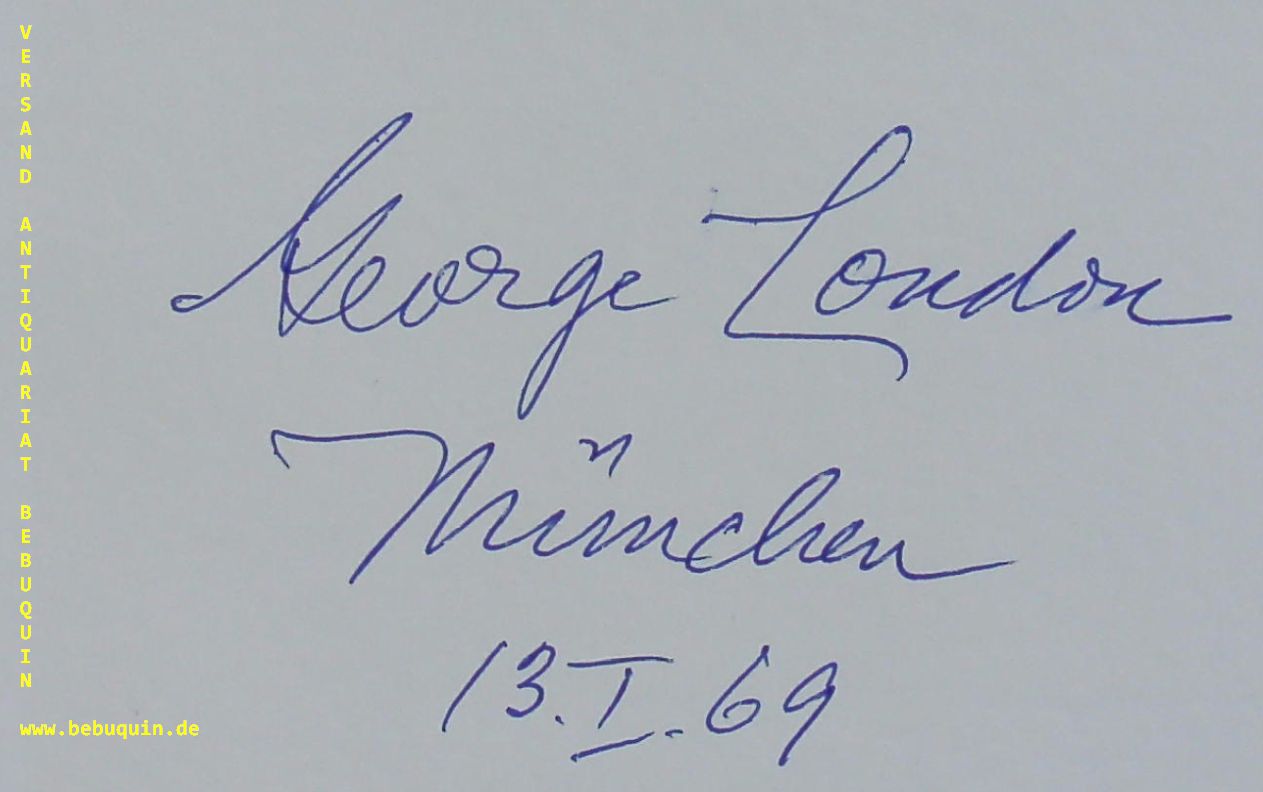 VERSAND ANTIQUARIAT BEBUQUIN
www.bebuquin.de
George London
München
13.I.69